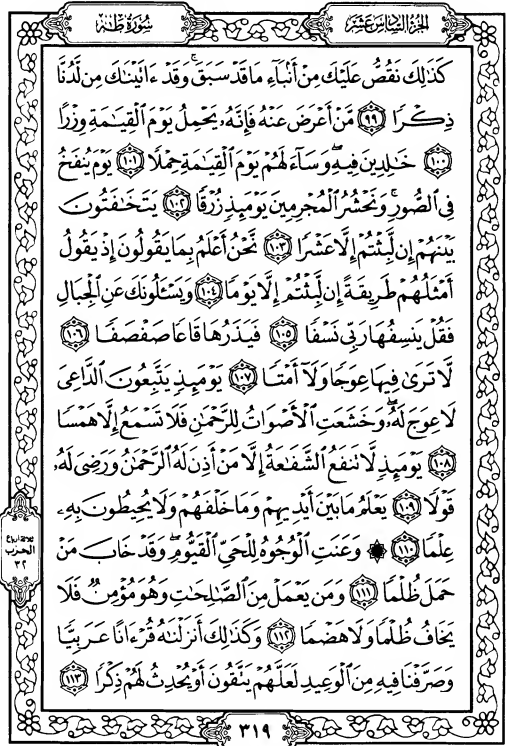 سُورَةُ طٰهٰ
الجُزْءُ السَّادِسَ عَشَرَ
كَذَٰلِكَ نَقُصُّ عَلَيْكَ مِنْ أَنۢبَآءِ مَا قَدْ سَبَقَ ۚ وَقَدْ ءَاتَيْنَٰكَ مِن لَّدُنَّا
ذِكْرًا ٩٩ مَّنْ أَعْرَضَ عَنْهُ فَإِنَّهُۥ يَحْمِلُ يَوْمَ ٱلْقِيَٰمَةِ وِزْرًا
١٠٠ خَٰلِدِينَ فِيهِ ۖ وَسَآءَ لَهُمْ يَوْمَ ٱلْقِيَٰمَةِ حِمْلًا ١٠١ يَوْمَ يُنفَخُ
فِى ٱلصُّورِ ۚ وَنَحْشُرُ ٱلْمُجْرِمِينَ يَوْمَئِذٍ زُرْقًا ١٠٢ يَتَخَٰفَتُونَ
بَيْنَهُمْ إِن لَّبِثْتُمْ إِلَّا عَشْرًا ١٠٣ نَّحْنُ أَعْلَمُ بِمَا يَقُولُونَ إِذْ يَقُولُ
أَمْثَلُهُمْ طَرِيقَةً إِن لَّبِثْتُمْ إِلَّا يَوْمًا ١٠٤ وَيَسْـَٔلُونَكَ عَنِ ٱلْجِبَالِ
فَقُلْ يَنسِفُهَا رَبِّى نَسْفًا ١٠٥ فَيَذَرُهَا قَاعًا صَفْصَفًا ١٠٦
لَّا تَرَىٰ فِيهَا عِوَجًا وَلَآ أَمْتًا ١٠٧ يَوْمَئِذٍ يَتَّبِعُونَ ٱلدَّاعِىَ
لَا عِوَجَ لَهُۥ ۖ وَخَشَعَتِ ٱلْأَصْوَاتُ لِلرَّحْمَٰنِ فَلَا تَسْمَعُ إِلَّا هَمْسًا
١٠٨ يَوْمَئِذٍ لَّا تَنفَعُ ٱلشَّفَٰعَةُ إِلَّا مَنْ أَذِنَ لَهُ ٱلرَّحْمَٰنُ وَرَضِىَ لَهُۥ
قَوْلًا ١٠٩ يَعْلَمُ مَا بَيْنَ أَيْدِيهِمْ وَمَا خَلْفَهُمْ وَلَا يُحِيطُونَ بِهِۦ
عِلْمًا ١١٠ ۞ وَعَنَتِ ٱلْوُجُوهُ لِلْحَىِّ ٱلْقَيُّومِ ۖ وَقَدْ خَابَ مَنْ
حَمَلَ ظُلْمًا ١١١ وَمَن يَعْمَلْ مِنَ ٱلصَّٰلِحَٰتِ وَهُوَ مُؤْمِنٌ فَلَا
يَخَافُ ظُلْمًا وَلَا هَضْمًا ١١٢ وَكَذَٰلِكَ أَنزَلْنَٰهُ قُرْءَانًا عَرَبِيًّا
وَصَرَّفْنَا فِيهِ مِنَ ٱلْوَعِيدِ لَعَلَّهُمْ يَتَّقُونَ أَوْ يُحْدِثُ لَهُمْ ذِكْرًا ١١٣
ثلاثة أرباع
الحزب
٣٢
٣١٩